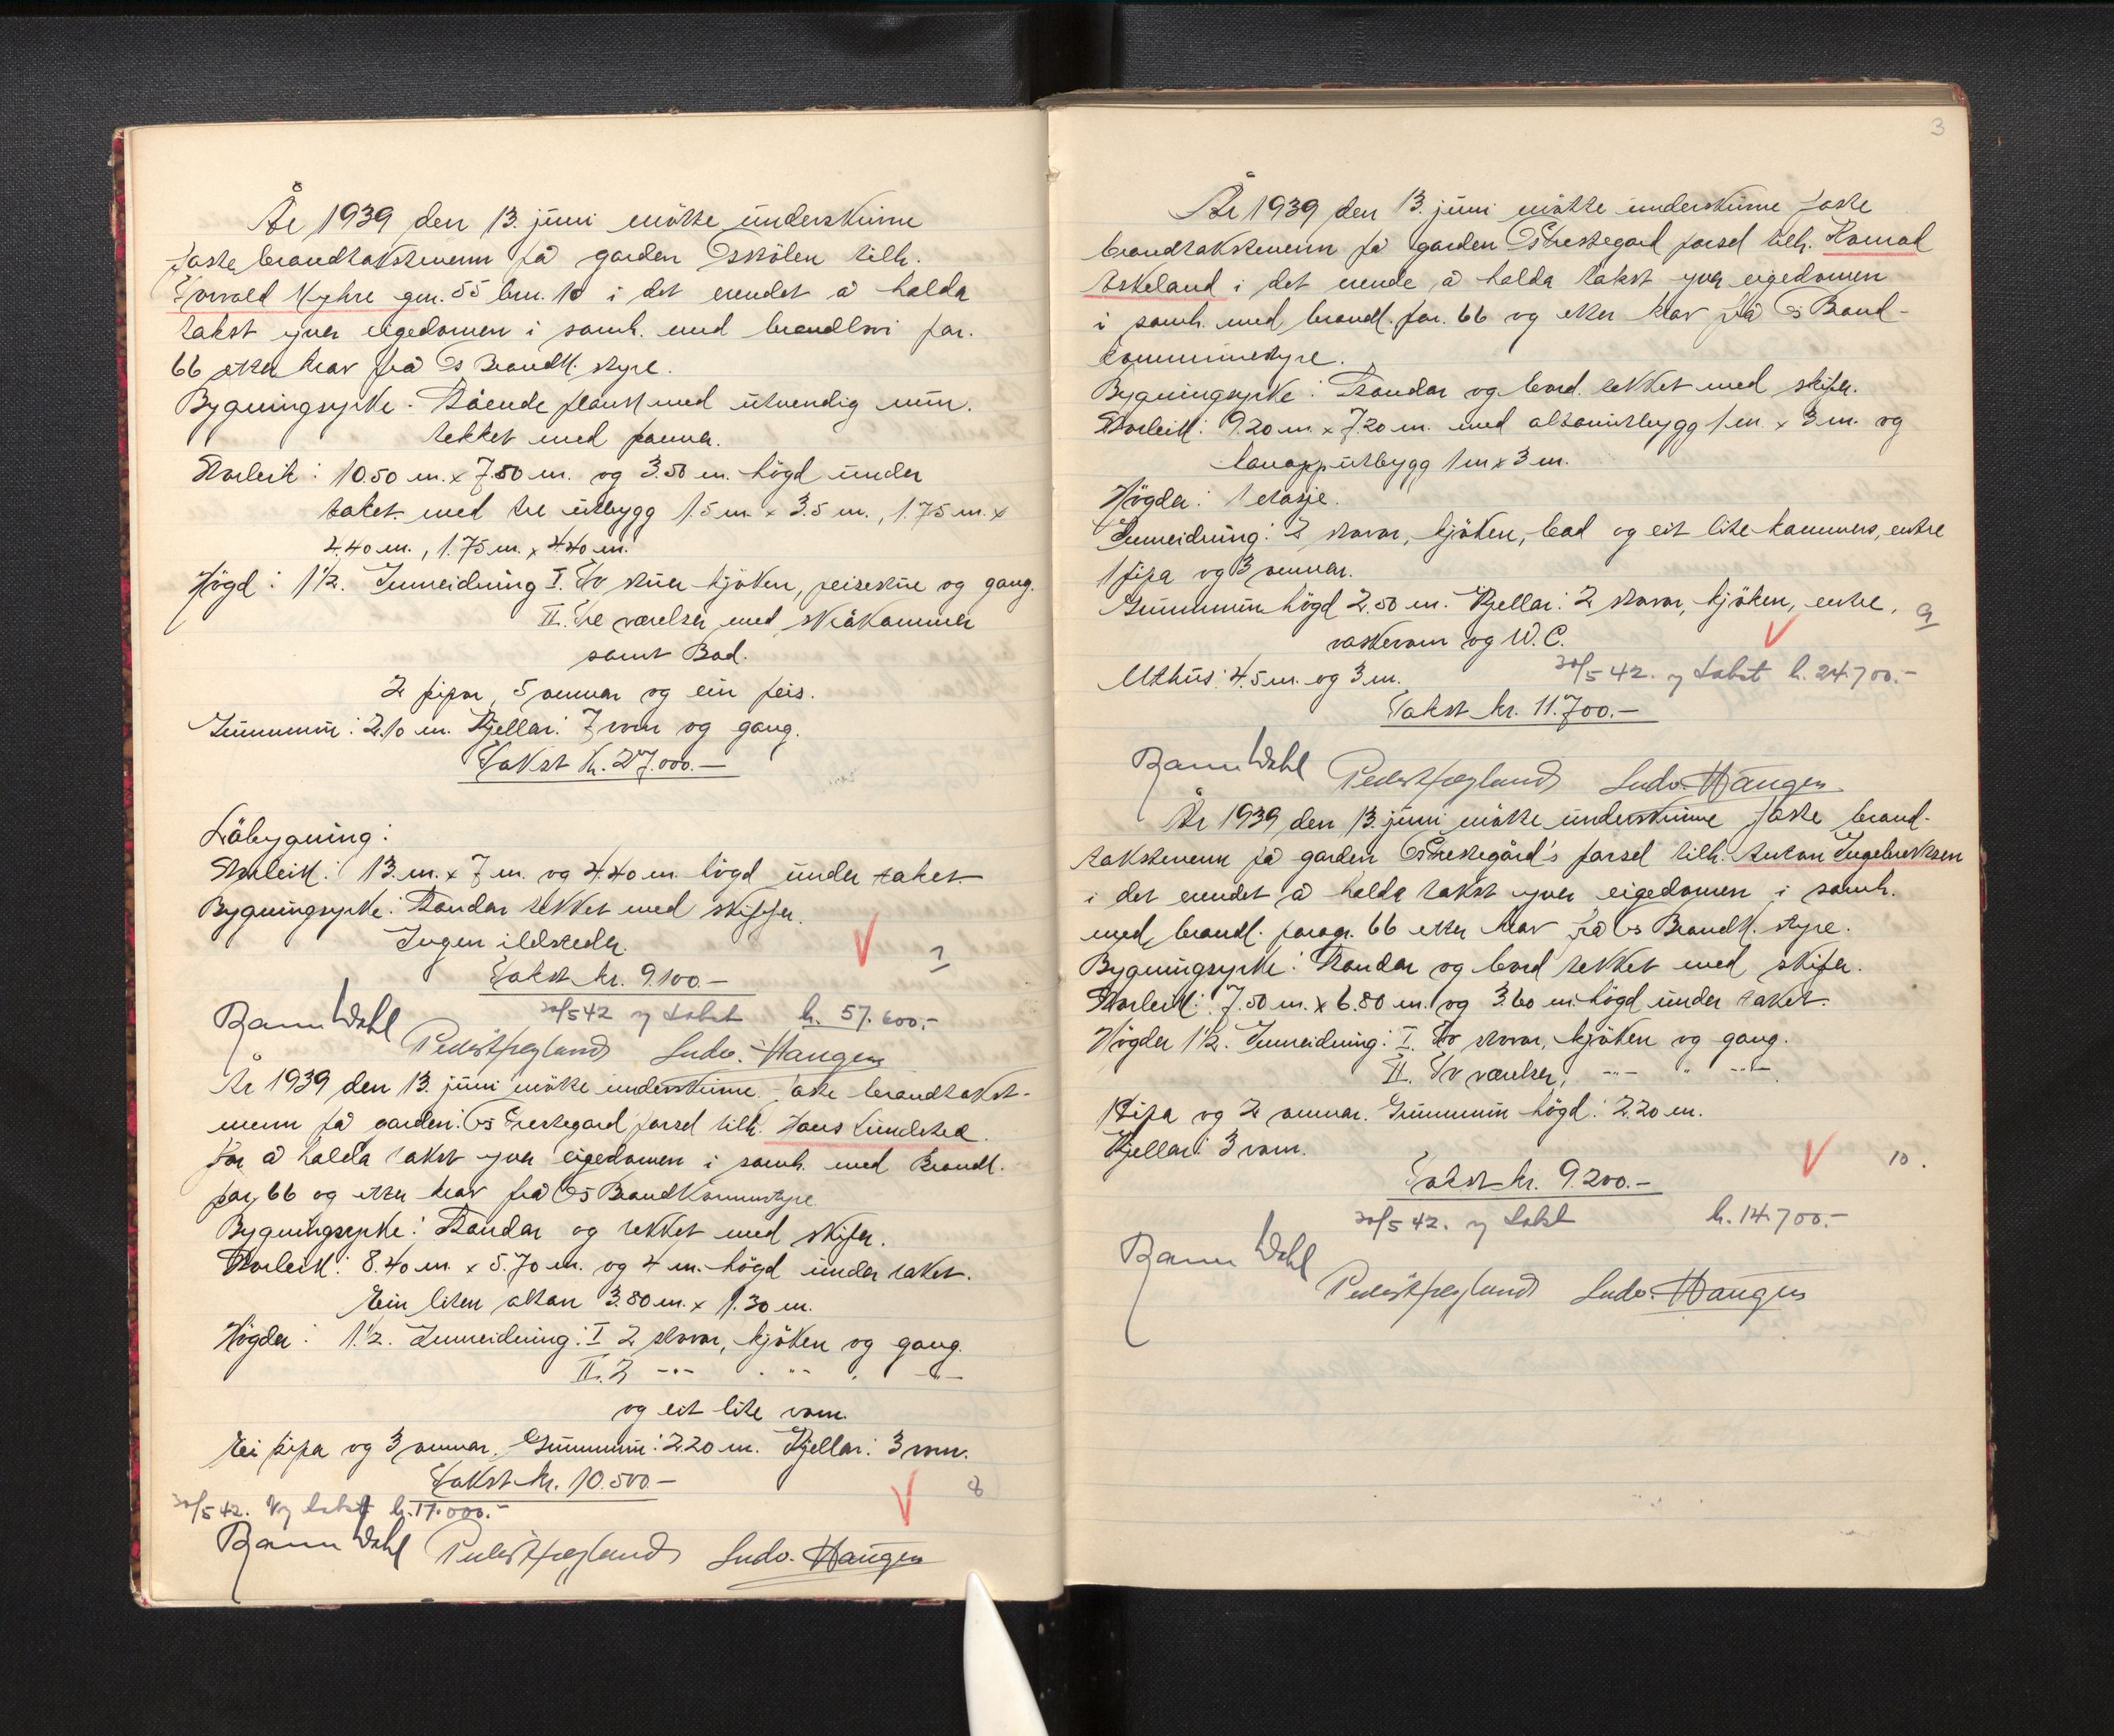 År 1939 den 13. juni mötte underskrivne
faste brandtakstmenn på garden Osskölen tilh.
Torvald Myhre gnr. 55 brn. 10 i det erendet å halda
takst yver eigedomen i samh. med brandlovi par.
66 etter krav frå Os Brandk. styre.
Bygningsyrke: Stående plank med utvendig mur.
tekket med panner.
Storleik: 10.50 m. x 7.50 m. og 3.50 m. högd under
taket med tre utbygg 1.5 m. x 3.5 m., 1.75 m. x
4.40 m., 1.75 m. x 4.40 m.
Högd: 1½. Innreidning I. To stuer kjöken, peisestue og gang.
II. Tre værelser med skråkammer
samt Bad.
2 pipor, 5 omnar og ein peis.
Grunnmur: 2.10 m. Kjellar: 7 rom og gang.
Takst kr. 27.000.-
Löbygning:
Storleik: 13 m. x 7 m. og 4.40 m. högd under taket.
Bygningsyrke: Standar tekket med skiffer.
Ingen ildsteder.
Takst kr. 9.100.-
7
30/5 42 ny takst kr. 57.600.-
Wahl Peder Hegland Ludv. Haugen
År 1939 den 13. juni mötte underskrivne faste brandtakst-
menn på garden: Os Prestegard parsel tilh. Hans Lundetræ.
for å halda takst yver eigedomen i samh. med Brandl.
par. 66 og etter krav frå Os Brandkommstyre.
Bygningsyrke: Standar og tekket med skifer.
Storleik: 8.40 m. x 5.70 m. og 4 m. högd under taket.
Ein liten altan 3.80 m. x 1.30 m.
Högder: 1½. Innreidning: I 2 stovor, kjöken og gang.
II. 2 -"- . -"- . -"-
og eit lite rom.
Ei pipa og 3 omnar. Grunnmur: 2.20 m. Kjellar: 3 rom.
Takst kr. 10.500.-
8
30/5 42. Ny takst kr. 17.000.-
Wahl Peder Hegland Ludv. Haugen
3
År 1939 den 13. juni mötte underskrivne faste
brandtakstmenn på garden Os Prestegard parsel tilh. Konrad
Askeland i det erende å halda takst yver eigedomen
i samh. med brandl. par. 66 og etter krav frå Os Brand-
kommunestyre.
Bygningsyrke: Standar og bord tekket med skifer.
Storleik: 9.20 m. x 7.20 m. med altanutbygg 1 m. x 3 m. og
karapputbygg 1 m x 3 m.
Högder: 1 etasje.
Innreidning: 3 stovor, kjöken, bad og eit lite kammers, entre
1 pipa og 3 omnar.
Grunnmur högd 2.50 m. Kjellar: 2 stovor, kjöken, entre,
vaskerom og W.C.
9
Uthus: 4.5 m. og 3 m.
30/5 42. ny takst kr. 24.700.-
Takst kr. 11.700.-
Wahl Peder Hegland Ludv. Haugen
År 1939 den 13. juni mötte underskrivne faste brand-
takstmenn på garden Os Prestegård's parsel tilh. Anton Ingebrektsen
i det erendet å halda takst yver eigedomen i samh.
med brandl. paragr. 66 etter krav frå Os Brandk. styre.
Bygningsyrke: Standar og bord tekket med skifer.
Storleik: 7.50 m. x 6.80 m. og 3.60 m. högd under taket.
Högder 1½. Innreidning: I. To stovor, kjöken og gang.
II. To værelser, -"- " -"-
1 Pipa og 2 omnar. Grunnmur högd: 2.20 m.
Kjellar: 3 rom.
10.
Takst kr. 9.200.-
30/5 42. ny takst kr. 14.700.-
Wahl Peder Hegland Ludv. Haugen